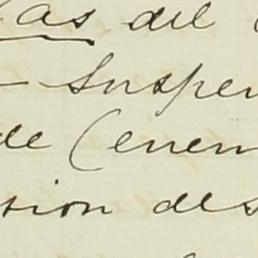 as del
- Suspen
de (enem
sion des